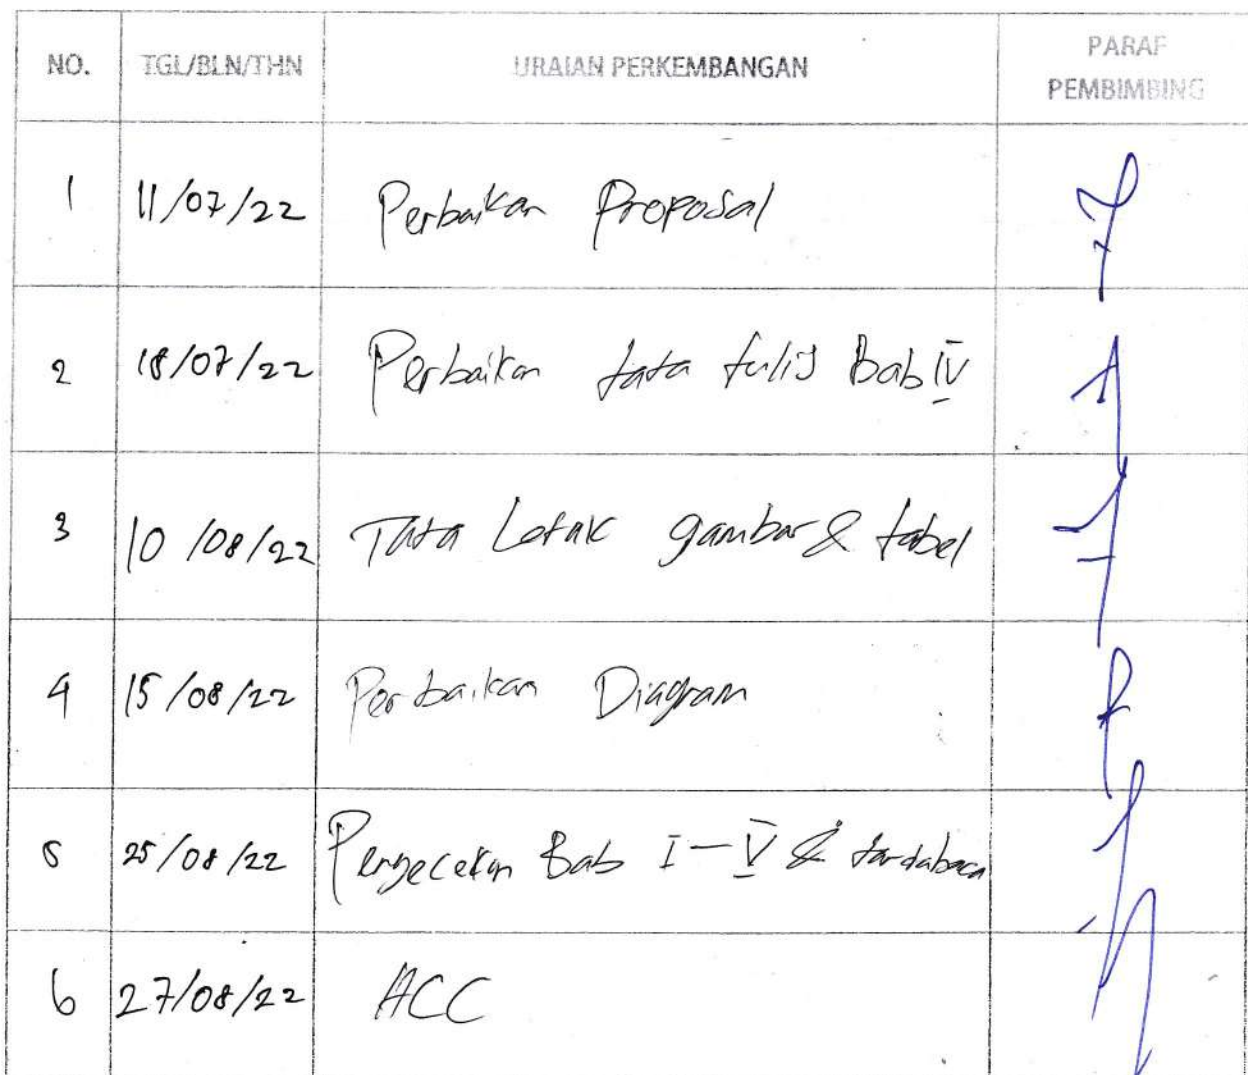 NO. TGL/BLN/THN URAIAN PERKEMBANGAN PARAF PEMBIMBING
1 11/07/22 Perbaikan Proposal
2 18/07/22 Perbaikan tata tulis Bab IV
3 10/08/22 Tata Letak gambar & tabel
4 15/08/22 Perbaikan Diagram
5 25/08/22 Pengecekan Bab I - V & tandabaca
6 27/08/22 ACC